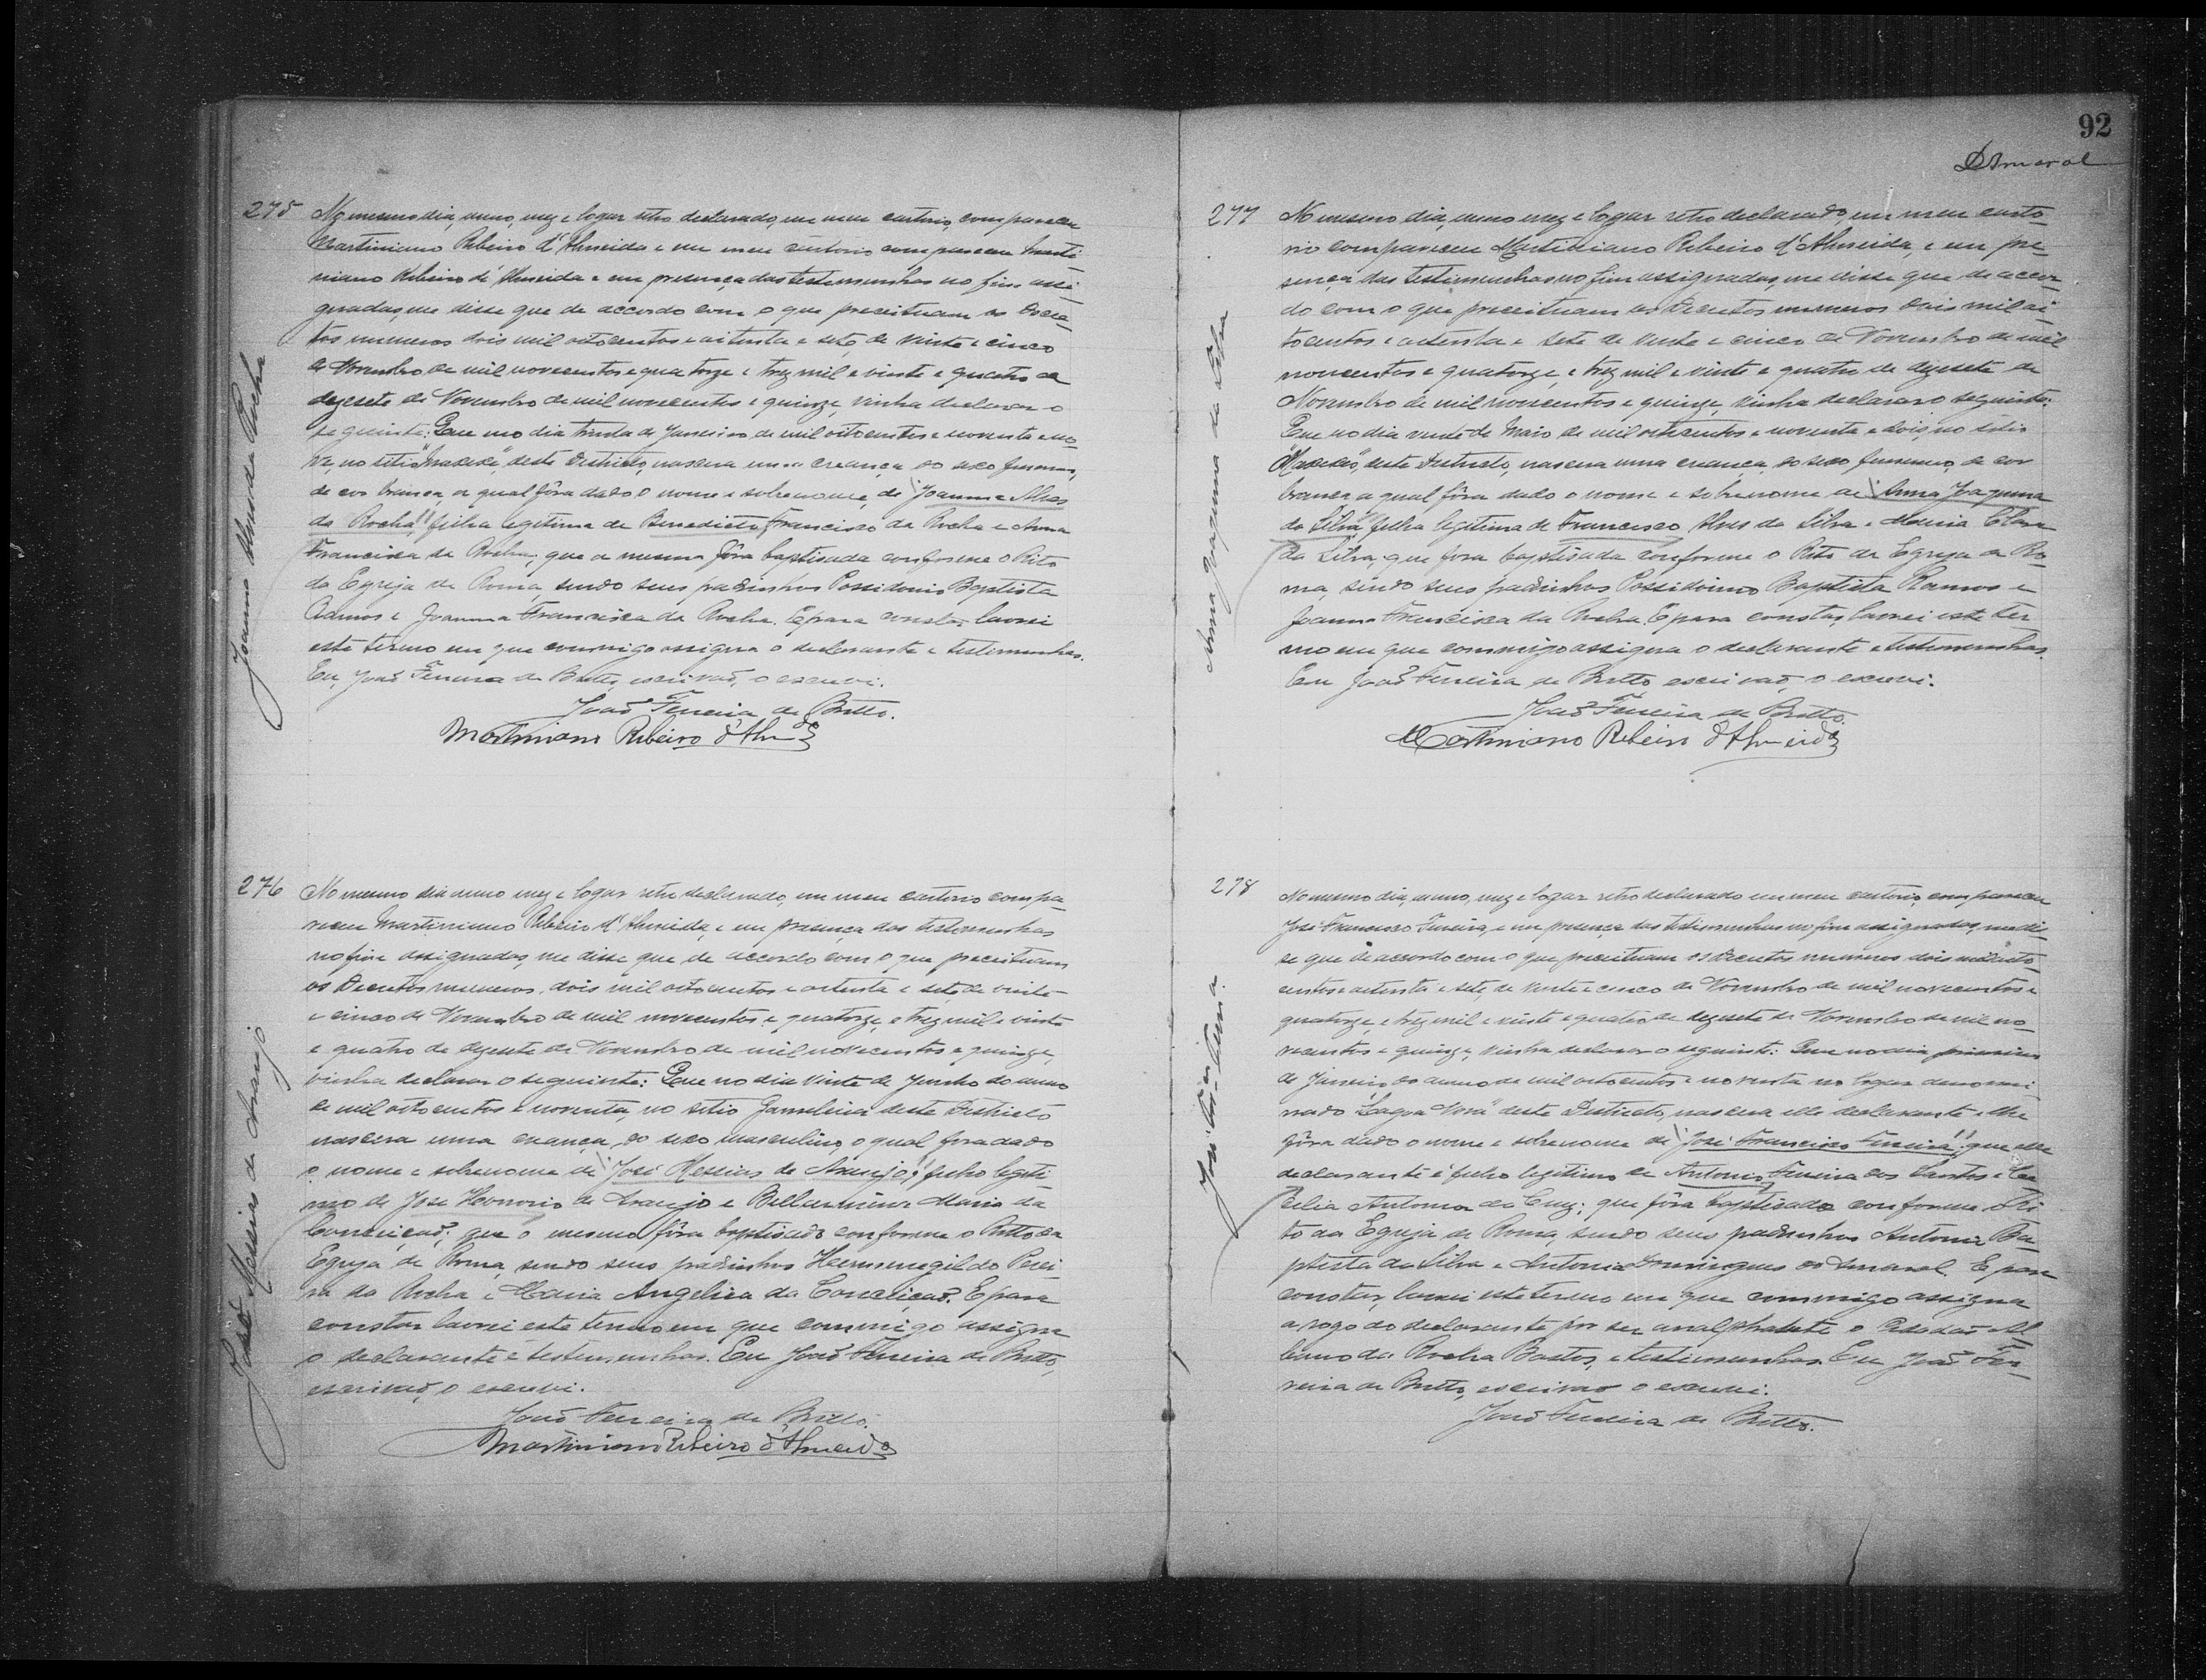 275 No mesmo dia, anno, mez e logar retro declarado, em meu cartorio, compareceu
Martiniano Ribeiro d'Almeida e em meu cartorio compareceu Marti
niano Ribeiro d'Almeida e em presença das testemunhas no fim assi-
gnadas, me disse que de accordo com o que preceituam os Decre-
tos numeros dois mil oitocentos e oitenta e sete, de vinte e cinco
de Novembro de mil novecentos e quatorze e trez mil e vinte e quatro de
dezesete de Novembro de mil novecentos e quinze, vinha declarar o
seguinte: Que no dia trinta de Janeiro de mil oitocentos e noventa e no
ve, no sitio deste Districto, nascera uma creança do sexo femenino,
de cor branca, a qual fôra dado o nome e sobrenome, de "Joanna Alves
da Rocha", filha legitima de Benedicto Francisco da Rocha e Anna
Francisca da Rocha, que a mesma fôra baptisada conforme o Rito
da Egreja de Roma, sendo seus padrinhos Possidonio Baptista
Ramos e Joanna Francisca da Rocha. E para constar lavrei
este termo em que commigo assigna o declarante e testemunhas.
Eu, João Ferreira de Britto, escrivão, o escrevi.
João Ferreira de Britto.
Martiniano Ribeiro d'Almda
Joanna Alves da Rocha
276 No mesmo dia anno mez e logar retro declarado, em meu cartorio compa-
receu Martiniano Ribeiro d'Almeida, e em presença das testemunhas
no fim assignadas, me disse que de accordo com o que preceituam
os Decretos numeros, dois mil oitocentos e oitenta e sete, de vinte
e cinco de Novembro de mil novecentos e quatorze, e trez mil e vinte
e quatro de dezesete de Novembro de mil novecentos e quinze,
vinha declarar o seguinte: Que no dia vinte de Junho do anno
de mil oitocentos e noventa, no sitio Gamelleira deste Districto
nascera uma creança, do sexo masculino, o qual fora dado
o nome e sobrenome de "José Messias de Araujo", filho legiti-
mo de José Honorio de Araujo e Bellarmina Maria da
Conceição; que o mesmo fôra baptisado conforme o Ritto da
Egreja de Roma, sendo seus padrinhos Hermenegildo Perei-
ra da Rocha e Maria Angelica da Conceição. E para
constar lavrei este termo em que commigo assigna
o declarante e testemunhas. Eu João Ferreira de Britto,
escrivão, o escrevi.
João Ferreira de Britto.
Martiniano Ribeiro d'Almeida
José Messias de Araujo
92
D Amaral
277 No mesmo dia, anno mez e logar retro declarado, em meu carto-
rio compareceu Martiniano Ribeiro d'Almeida, e em pre-
sença das testemunhas no fim assignadas, me disse que de accor-
do com o que preceituam os Decretos numeros dois mil oi-
tocentos e oitenta e sete de vinte e cinco de Novembro de mil
novecentos e quatorze, e trez mil e vinte e quatro de dezesete de
Novembro de mil novecentos e quinze, vinha declarar o seguinte:
Que no dia vinte de Maio de mil oitocentos e noventa e dois, no sitio
deste Districto, nascera uma creança, do sexo femenino, de cor
branca, a qual fôra dado o nome e sobrenome de "Anna Joaquina
da Silva", filha legitima de Francisco Alves da Silva e Maria Clara
da Silva, que fora baptisada conforme o Rito da Egreja de Ro-
ma, sendo seus padrinhos Possidonio Baptista Ramos e
Joanna Francisca da Rocha. E para constar, lavrei este ter-
mo em que commigo assigna o declarante e testemunhas.
Eu João Ferreira de Britto escrivão, o escrevi.
João Ferreira de Britto.
Martiniano Ribeiro d'Almeida
Anna Joaquina da Silva
278 No mesmo dia, anno, mez e logar retro declarado em meu cartorio, compareceu
José Francisco Ferreira, e em presença das testemunhas no fim assignadas, me dis-
se que de accordo com o que preceituam os Decretos numeros dois mil oito-
centos e oitenta e sete, de vinte e cinco de Novembro de mil novecentos e
quatorze, e trez mil e vinte e quatro de dezesete de Novembro de mil no-
vecentos e quinze, vinha declarar o seguinte: Que no dia primeiro
de Janeiro do anno de mil oitocentos e noventa no logar denomi-
nado "Lagoa Nova" deste Districto, nascera elle declarante e lhe
fôra dado o nome e sobrenome de "José Francisco Ferreira"; que elle
declarante é filho legitimo de Antonio Ferreira dos Santos e Ce-
cilia Antonia da Cruz; que fôra baptisado conforme o Ri-
to da Egreja de Roma, sendo seus padrinhos Antonio Ba-
ptista da Silva e Antonia Domingues do Amaral. E para
constar, lavrei este termo em que commigo assigna
a rogo do declarante por ser analphabeto o Cidadão Al-
bano da Rocha Bastos, e testemunhas. Eu João Fer-
reira de Britto, escrivão o escrevi.
João Ferreira de Britto.